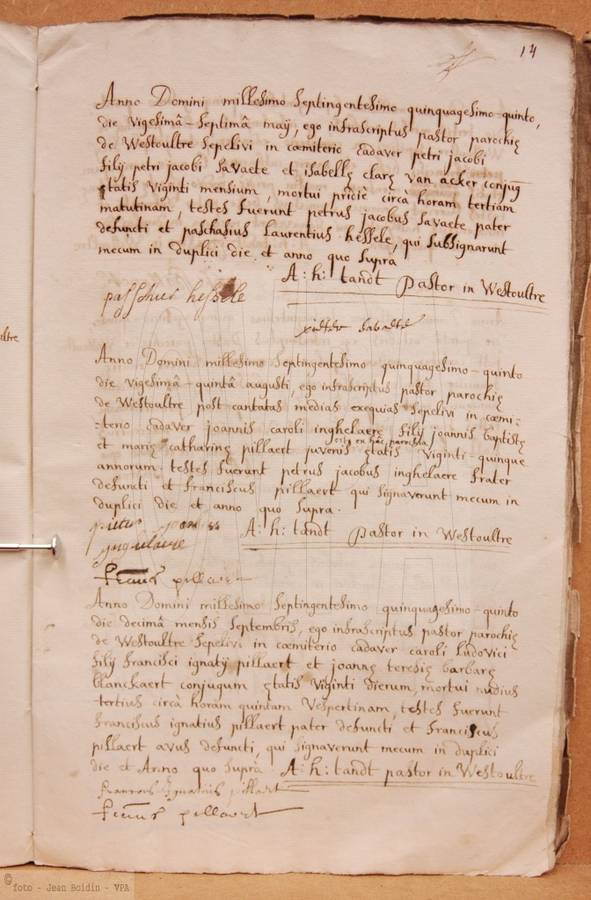 14
Anno Domini millesimo septingentesimo quinquagesimo-quinto,
die vigesimâ-septimâ maÿ, ego infrascriptus pastor parochię
de Westoultre sepelivi in cœmiterio cadaver petri jacobi
filij petri jacobi savaete et isabellę clarę van acker conjug
ętatis viginti mensium, mortui pridiè circà horam tertiam
matutinam, testes fuerunt petrus jacobus savaete pater
defuncti et paschasius Laurentius hessele, qui subsignarunt
mecum in duplici die et anno quo supra
A: h: tandt Pastor in Westoultre
passchier hessele
pieter savaete
Anno Domini millesimo septingentesimo quinquagesimo-quinto
die vigesimâ-quintâ augusti, ego infrascriptus pastor parochię
de Westoultre post cantatas medias exequias sepelivi in cœmi:
:terio cadaver joannis caroli inghelaere filij joannis baptistę
et marię catharinę pillaert juvenis ętatis viginti-quinque
ex hac parochia
annorum testes fuerunt petrus jacobus inghelaere frater
defuncti et franciscus pillaert qui signaverunt mecum in
duplici die et anno quo supra.
A: h: tandt Pastor in Westoultre
pieter
ynguelaere
pillaert
Anno Domini millesimo septingentesimo quinquagesimo-quinto
die decimâ mensis septembris, ego infrascriptus pastor parochię
de Westoultre sepelivi in cœmiterio cadaver caroli Ludovici
filij francisci ignatij pillaert et joannę teresię barbarę
blanckaert conjugum ętatis viginti dierum, mortui nudius
tertius circà horam quintam vespertinam, testes fuerunt
franciscus ignatius pillaert pater defuncti et franciscus
pillaert avus defuncti, qui signaverunt mecum in duplici
die et Anno quo suprà A: h: tandt pastor in Westoultre
francois Ignatius pillaert
pillaert
©foto - Jean Boidin - VPA